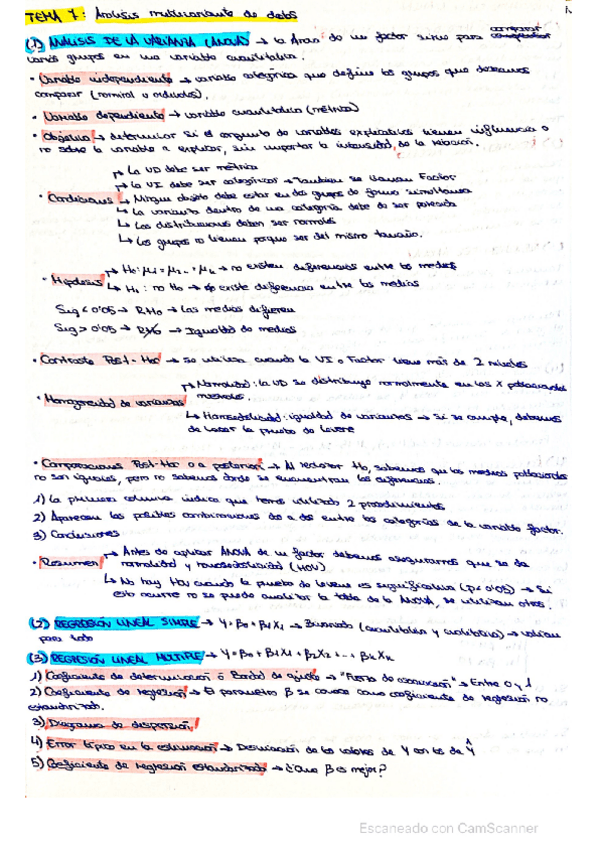 TEMA 7: Análisis multivariante de datos
(1) ANÁLISIS DE LA VARIANZA (ANOVA) → la Anova de un factor sirve para comparar
varios grupos en una variable cuantitativa.
• Variable independiente → variable categórica que define los grupos que deseamos
comparar (nominal u ordinales).
• Variable dependiente → variable cuantitativa (métrica)
• Objetivo → determinar si el conjunto de variables explicativas tienen influencia o
no sobre la variable a explicar, sin importar la intensidad de la relación.
↱ La VD debe ser métrica
↱ la VI debe ser categórica → también se llaman Factor
• Condiciones → Ningún objeto debe estar en dos grupos de forma simultánea
↳ La varianza dentro de una categoría debe de ser parecida
↳ Las distribuciones deben ser normales
↳ Los grupos no tienen porque ser del mismo tamaño.
↱ H0: μ1 = μ2 .. μk → no existen diferencias entre las medias
• Hipótesis ↳ H1: no H0 → existe diferencia entre las medias
Sig < 0'05 → RH0 → Las medias difieren
Sig > 0'05 → RH0 → Igualdad de medias
• Contraste Post-Hoc → se utiliza cuando la VI o Factor tiene más de 2 niveles
↱ Normalidad: la VD se distribuye normalmente en las X poblaciones
• Homogeneidad de varianzas muestrales.
↳ Homocedasticidad: igualdad de varianzas → Si se cumple, debemos
de hacer la prueba de Levene
• Comparaciones Post-Hoc o a posteriori → Al rechazar H0, sabemos que las medias poblacionales
no son iguales, pero no sabemos donde se encuentran las diferencias.
1) La primera columna indica que hemos utilizado 2 procedimientos
2) Aparecen las posibles combinaciones dos a dos entre las categorías de la variable factor.
3) Conclusiones
↱ Antes de aplicar ANOVA de un factor debemos asegurarnos que se da
• Resumen normalidad y homocedasticidad (HOV)
↳ No hay HOV cuando la prueba de Levene es significativa (p < 0'05) → Si
esto ocurre no se puede analizar la tabla de la ANOVA, se utilizan otras.
(2) REGRESIÓN LINEAL SIMPLE → Y = β0 + β1X1 → Bivariado (cuantitativa y cualitativa) → valían
para todo
(3) REGRESIÓN LINEAL MÚLTIPLE → Y = β0 + β1X1 + β2X2 + ... + βkXk
1) Coeficiente de determinación ó Bondad de ajuste → "Fuerza de asociación" → Entre 0 y 1
2) Coeficiente de regresión → El parámetro β se conoce como coeficiente de regresión no
estandarizado.
3) Diagrama de dispersión
4) Error típico en la estimación → Desviación de los valores de Y con los de Ŷ
5) Coeficiente de regresión estandarizado → ¿Que β es mejor?
Escaneado con CamScanner